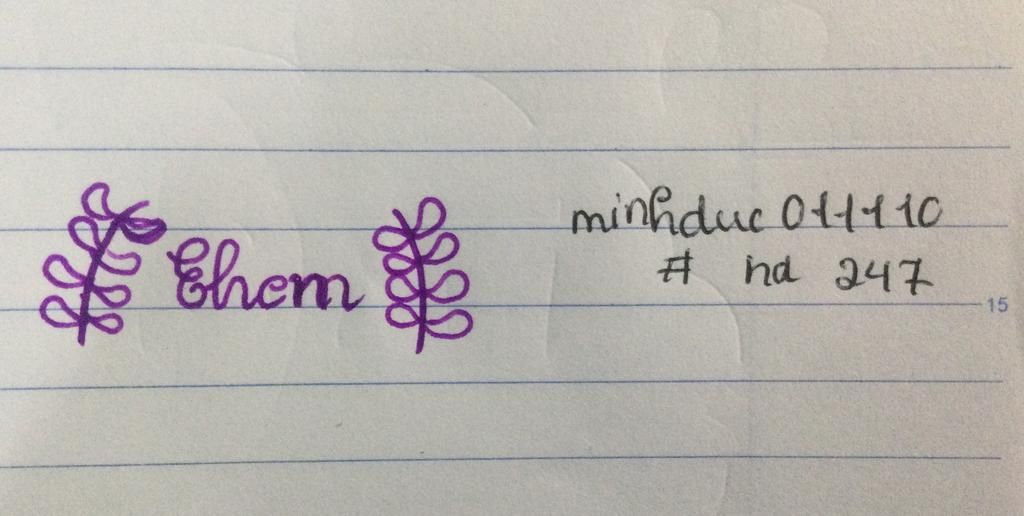 Ehem
minhduc 011110
# hd 247
15